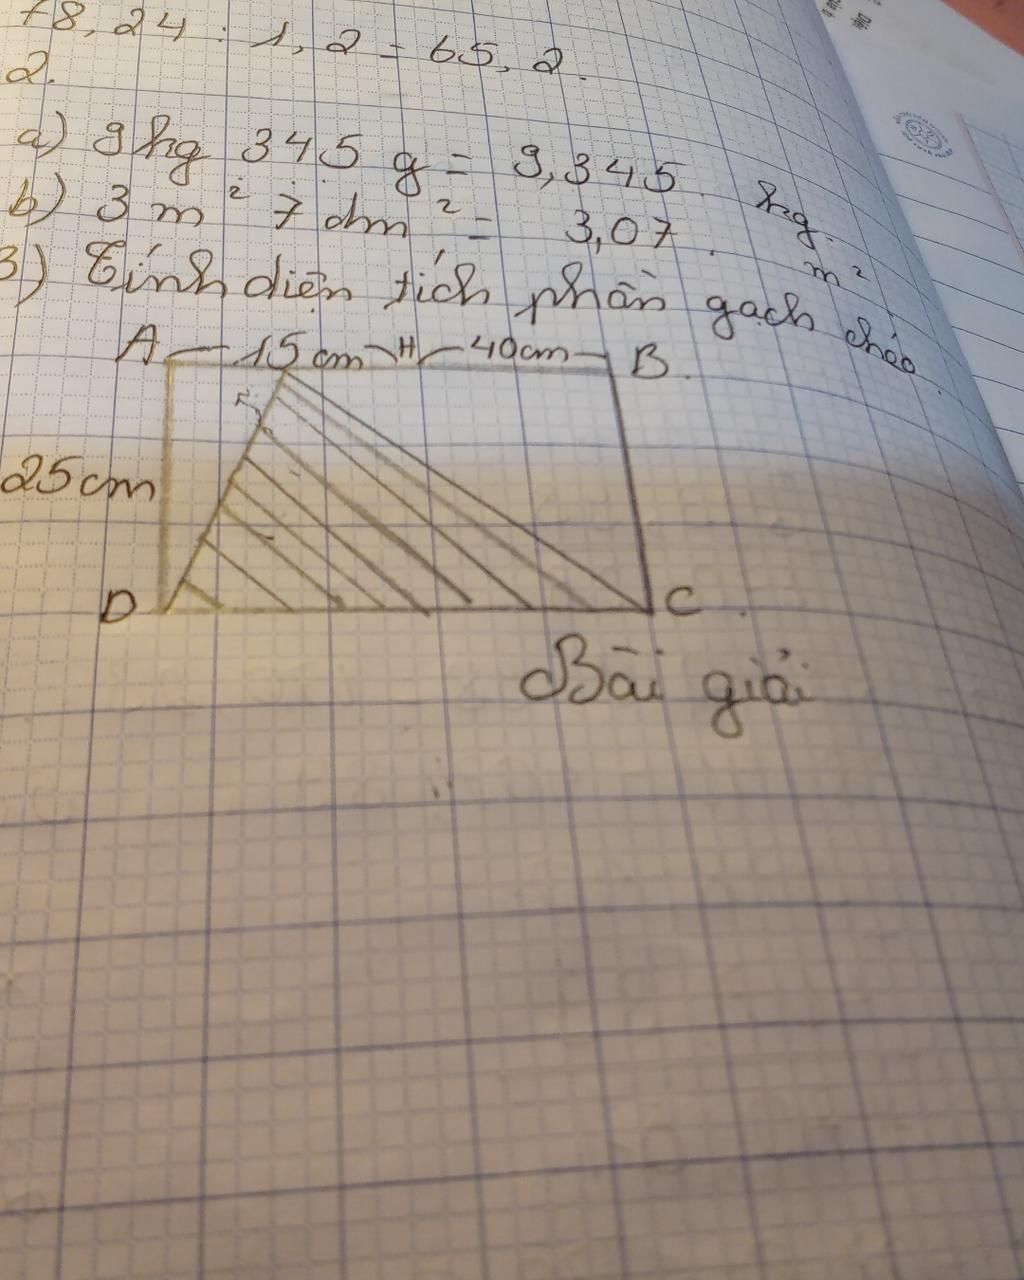 78,24 : 1,2 = 65,2
2.
a) 9kg 345 g = 9,345 kg.
b) 3 m² 7 dm² = 3,07 m²
3) Tính diện tích phần gạch chéo.
A 15 cm H 40cm B
25cm
D C
Bài giải